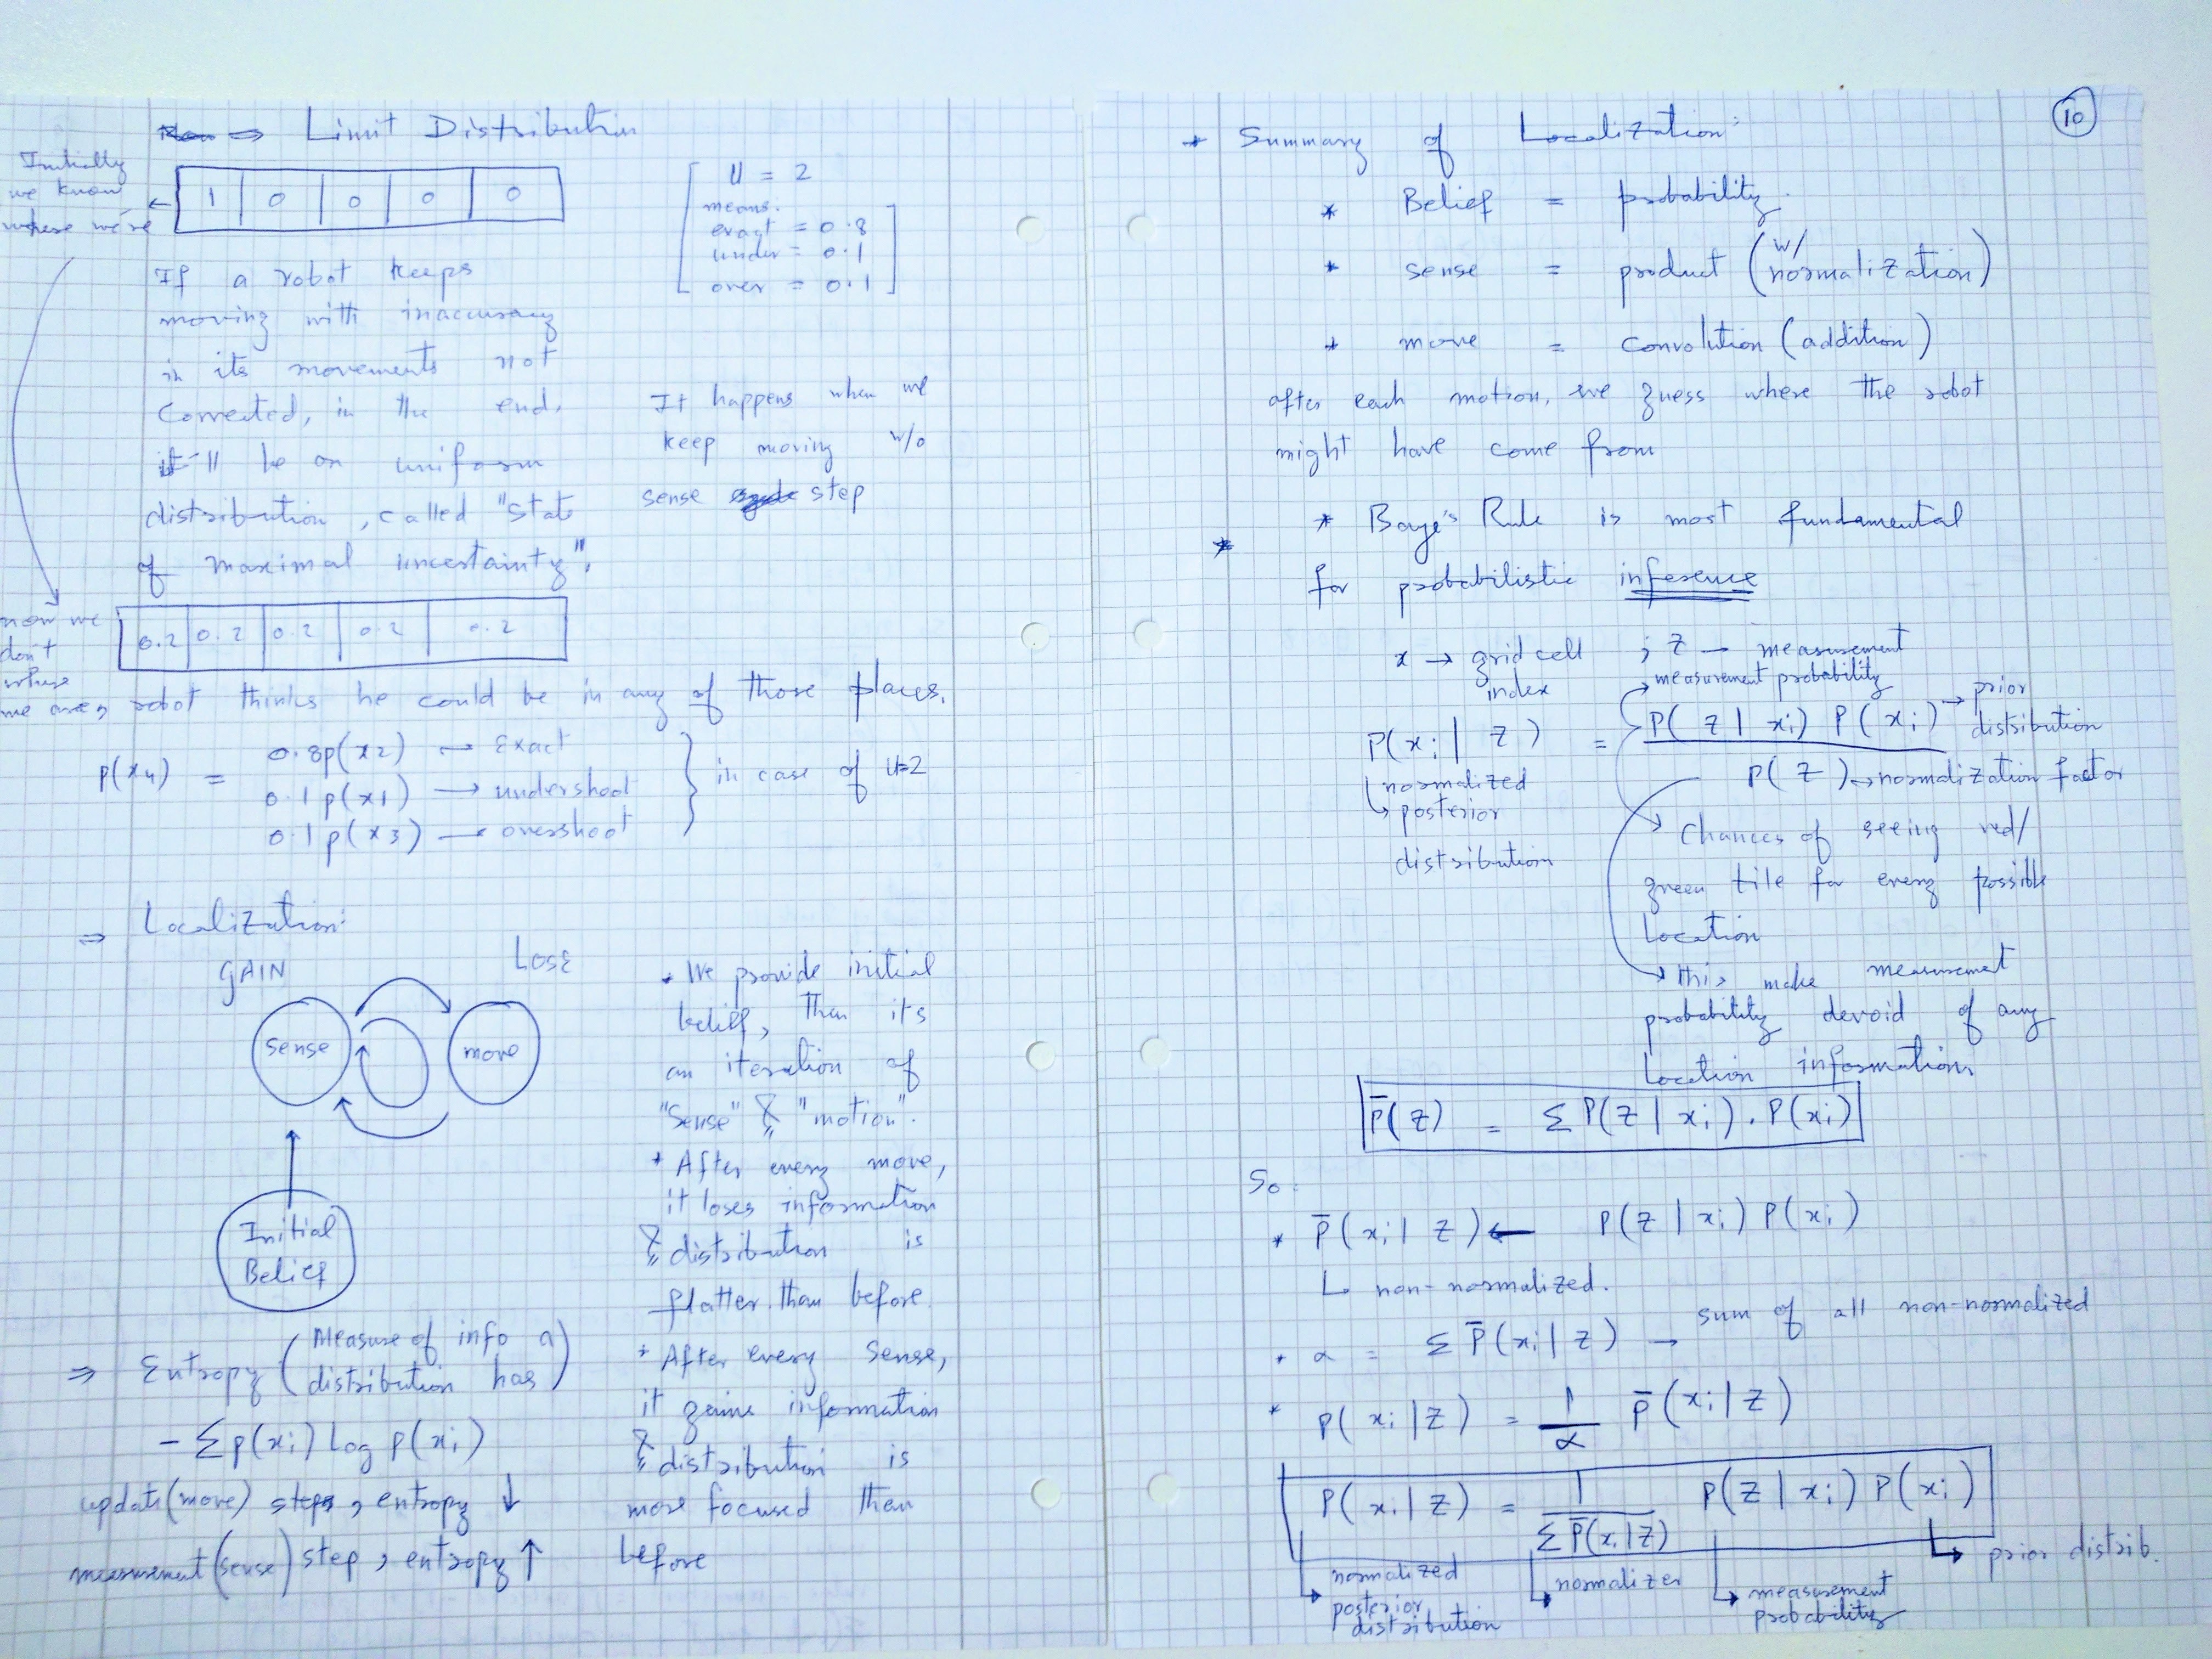 ⇒ Limit Distribution
Initially
we know
where we're
1 0 0 0 0
U = 2
means:
exact = 0.8
under = 0.1
over = 0.1
If a robot keeps
moving with inaccuracy
in its movements not
Corrected, in the end,
it'll be on uniform
distribution, called "State
of maximal uncertainty".
It happens when we
keep moving w/o
sense step
now we
don't
where
we are,
0.2 0.2 0.2 0.2 0.2
robot thinks he could be in any of those places.
p(x4) =
0.8p(x2) → Exact
0.1p(x1) → undershoot
0.1p(x3) → overshoot
in case of U=2
⇒ Localization:
GAIN LOSE
sense move
Initial
Belief
* We provide initial
belief, then its
an iteration of
"Sense" & "motion".
* After every move,
it loses information
& distribution is
flatter than before.
* After every sense,
it gains information
& distribution is
more focused than
before
⇒ Entropy (Measure of info a
distribution has)
- Σ p(xi) Log p(xi)
update(move) step, entropy ↓
measurement(sense) step, entropy ↑
10
* Summary of Localization:
* Belief = probability.
* sense = product (w/
normalization)
* move = convolution (addition)
after each motion, we guess where the robot
might have come from
* Baye's Rule is most fundamental
for probabilistic inference
x → grid cell
index
; Z → measurement
measurement probability
P(xi | Z) = P(Z | xi) P(xi) → prior
distribution
P(Z) → normalization factor
normalized
posterior
distribution
Chances of seeing red/
green tile for every possible
Location
this make measurement
probability devoid of any
Location information.
P̄(Z) = Σ P(Z | xi) . P(xi)
So:
* P̄(xi | Z) ← P(Z | xi) P(xi)
non-normalized.
* α = Σ P̄(xi | Z) → sum of all non-normalized
* P(xi | Z) = 1/α P̄(xi | Z)
P(xi | Z) = 1/ΣP̄(xi|Z) P(Z | xi) P(xi)
normalized
posterior
distribution
normalizer
measurement
probability
prior distrib.